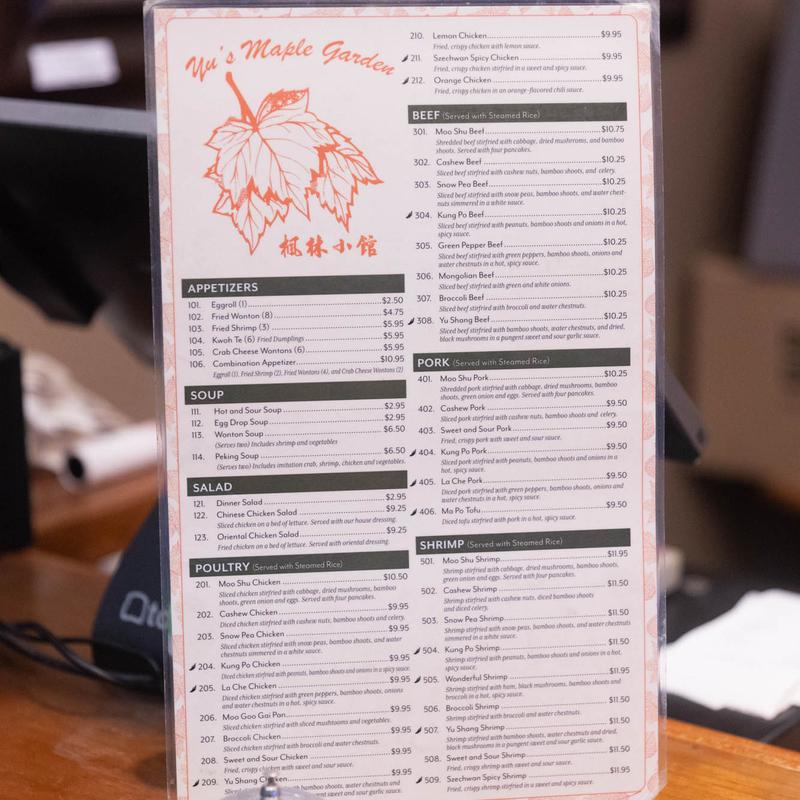 Yu's Maple Garden
枫林小馆
APPETIZERS
101. Eggroll (1) $2.50
102. Fried Wonton (8) $4.75
103. Fried Shrimp (3) $5.95
104. Kwoh Te (6) Fried Dumplings $5.95
105. Crab Cheese Wontons (6) $5.95
106. Combination Appetizer $10.95
Eggroll (1), Fried Shrimp (2), Fried Wontons (4), and Crab Cheese Wontons (2)
SOUP
111. Hot and Sour Soup $2.95
112. Egg Drop Soup $2.95
113. Wonton Soup $6.50
(Serves two) Includes shrimp and vegetables
114. Peking Soup $6.50
(Serves two) Includes imitation crab, shrimp, chicken and vegetables.
SALAD
121. Dinner Salad $2.95
122. Chinese Chicken Salad $9.25
Sliced chicken on a bed of lettuce. Served with our house dressing.
123. Oriental Chicken Salad $9.25
Fried chicken on a bed of lettuce. Served with oriental dressing.
POULTRY (Served with Steamed Rice)
201. Moo Shu Chicken $10.50
Sliced chicken stirfried with cabbage, dried mushrooms, bamboo
shoots, green onion and eggs. Served with four pancakes.
202. Cashew Chicken $9.95
Diced chicken stirfried with cashew nuts, bamboo shoots and celery.
203. Snow Pea Chicken $9.95
Sliced chicken stirfried with snow peas, bamboo shoots, and water
chestnuts simmered in a white sauce.
204. Kung Po Chicken $9.95
Diced chicken stirfried with peanuts, bamboo shoots and onions in a spicy sauce.
205. La Che Chicken $9.95
Diced chicken stirfried with green peppers, bamboo shoots, onions
and water chestnuts in a hot, spicy sauce.
206. Moo Goo Gai Pan $9.95
Sliced chicken stirfried with sliced mushrooms and vegetables.
207. Broccoli Chicken $9.95
Sliced chicken stirfried with broccoli and water chestnuts.
208. Sweet and Sour Chicken $9.95
Fried, crispy chicken with sweet and sour sauce.
209. Yu Shang Chicken $9.95
bamboo shoots, water chestnuts and
sweet and sour garlic sauce.
210. Lemon Chicken $9.95
Fried, crispy chicken with lemon sauce.
211. Szechwan Spicy Chicken $9.95
Fried, crispy chicken stirfried in a sweet and spicy sauce.
212. Orange Chicken $9.95
Fried, crispy chicken in an orange-flavored chili sauce.
BEEF (Served with Steamed Rice)
301. Moo Shu Beef $10.75
Shredded beef stirfried with cabbage, dried mushrooms, and bamboo
shoots. Served with four pancakes.
302. Cashew Beef $10.25
Sliced beef stirfried with cashew nuts, bamboo shoots, and celery.
303. Snow Pea Beef $10.25
Sliced beef stirfried with snow peas, bamboo shoots, and water chest-
nuts simmered in a white sauce.
304. Kung Po Beef $10.25
Sliced beef stirfried with peanuts, bamboo shoots and onions in a hot,
spicy sauce.
305. Green Pepper Beef $10.25
Sliced beef stirfried with green peppers, bamboo shoots, onions and
water chestnuts in a hot, spicy sauce.
306. Mongolian Beef $10.25
Sliced beef stirfried with green and white onions.
307. Broccoli Beef $10.25
Sliced beef stirfried with broccoli and water chestnuts.
308. Yu Shang Beef $10.25
Sliced beef stirfried with bamboo shoots, water chestnuts, and dried,
black mushrooms in a pungent sweet and sour garlic sauce.
PORK (Served with Steamed Rice)
401. Moo Shu Pork $10.25
Shredded pork stirfried with cabbage, dried mushrooms, bamboo
shoots, green onion and eggs. Served with four pancakes.
402. Cashew Pork $9.50
Sliced pork stirfried with cashew nuts, bamboo shoots and celery.
403. Sweet and Sour Pork $9.50
Fried, crispy pork with sweet and sour sauce.
404. Kung Po Pork $9.50
Sliced pork stirfried with peanuts, bamboo shoots and onions in a
hot, spicy sauce.
405. La Che Pork $9.50
Diced pork stirfried with green peppers, bamboo shoots, onions and
water chestnuts in a hot, spicy sauce.
406. Ma Po Tofu $9.50
Diced tofu stirfried with pork in a hot, spicy sauce.
SHRIMP (Served with Steamed Rice)
501. Moo Shu Shrimp $11.95
Shrimp stirfried with cabbage, dried mushrooms, bamboo shoots,
green onion and eggs. Served with four pancakes.
502. Cashew Shrimp $11.50
Shrimp stirfried with cashew nuts, diced bamboo shoots
and diced celery.
503. Snow Pea Shrimp $11.50
Shrimp stirfried with snow peas, bamboo shoots, and water chestnuts
simmered in a white sauce.
504. Kung Po Shrimp $11.50
Shrimp stirfried with peanuts, bamboo shoots and onions in a hot,
spicy sauce.
505. Wonderful Shrimp $11.95
Shrimp stirfried with ham, black mushrooms, bamboo shoots and
broccoli in a hot, spicy sauce.
506. Broccoli Shrimp $11.50
Shrimp stirfried with broccoli and water chestnuts.
507. Yu Shang Shrimp $11.50
Shrimp stirfried with bamboo shoots, water chestnuts and dried,
black mushrooms in a pungent sweet and sour garlic sauce.
508. Sweet and Sour Shrimp $11.50
Fried, crispy shrimp with sweet and sour sauce.
509. Szechwan Spicy Shrimp $11.95
Fried, crispy shrimp stirfried in a sweet and spicy sauce.